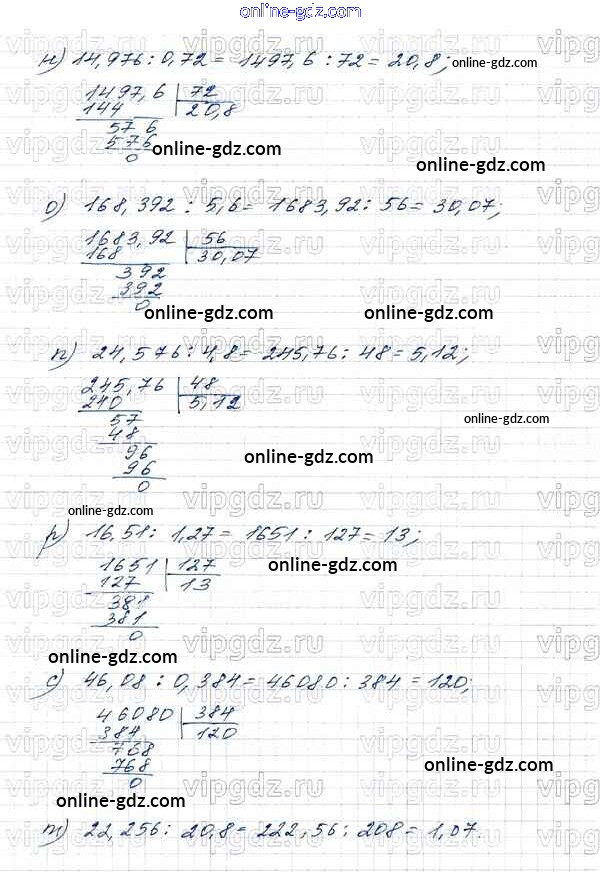 online-gdz.com
н) 14,976 : 0,72 = 1497,6 : 72 = 20,8; online-gdz.com
1497,6 72
144 20,8
57 6
576
0 online-gdz.com online-gdz.com
vipgdz.ru vipgdz.ru vipgdz.ru
о) 168,392 : 5,6 = 1683,92 : 56 = 30,07;
1683,92 56
168 30,07
392
392
0 online-gdz.com online-gdz.com
п) 24,576 : 4,8 = 245,76 : 48 = 5,12;
245,76 48
240 5,12
57 online-gdz.com
48
96 online-gdz.com
96
0
online-gdz.com
р) 16,51 : 1,27 = 1651 : 127 = 13;
1651 127 online-gdz.com
127 13
381
381
0
online-gdz.com
с) 46,08 : 0,384 = 46080 : 384 = 120;
46080 384
384 120
768
768 online-gdz.com
0
online-gdz.com
т) 22,256 : 20,8 = 222,56 : 208 = 1,07.